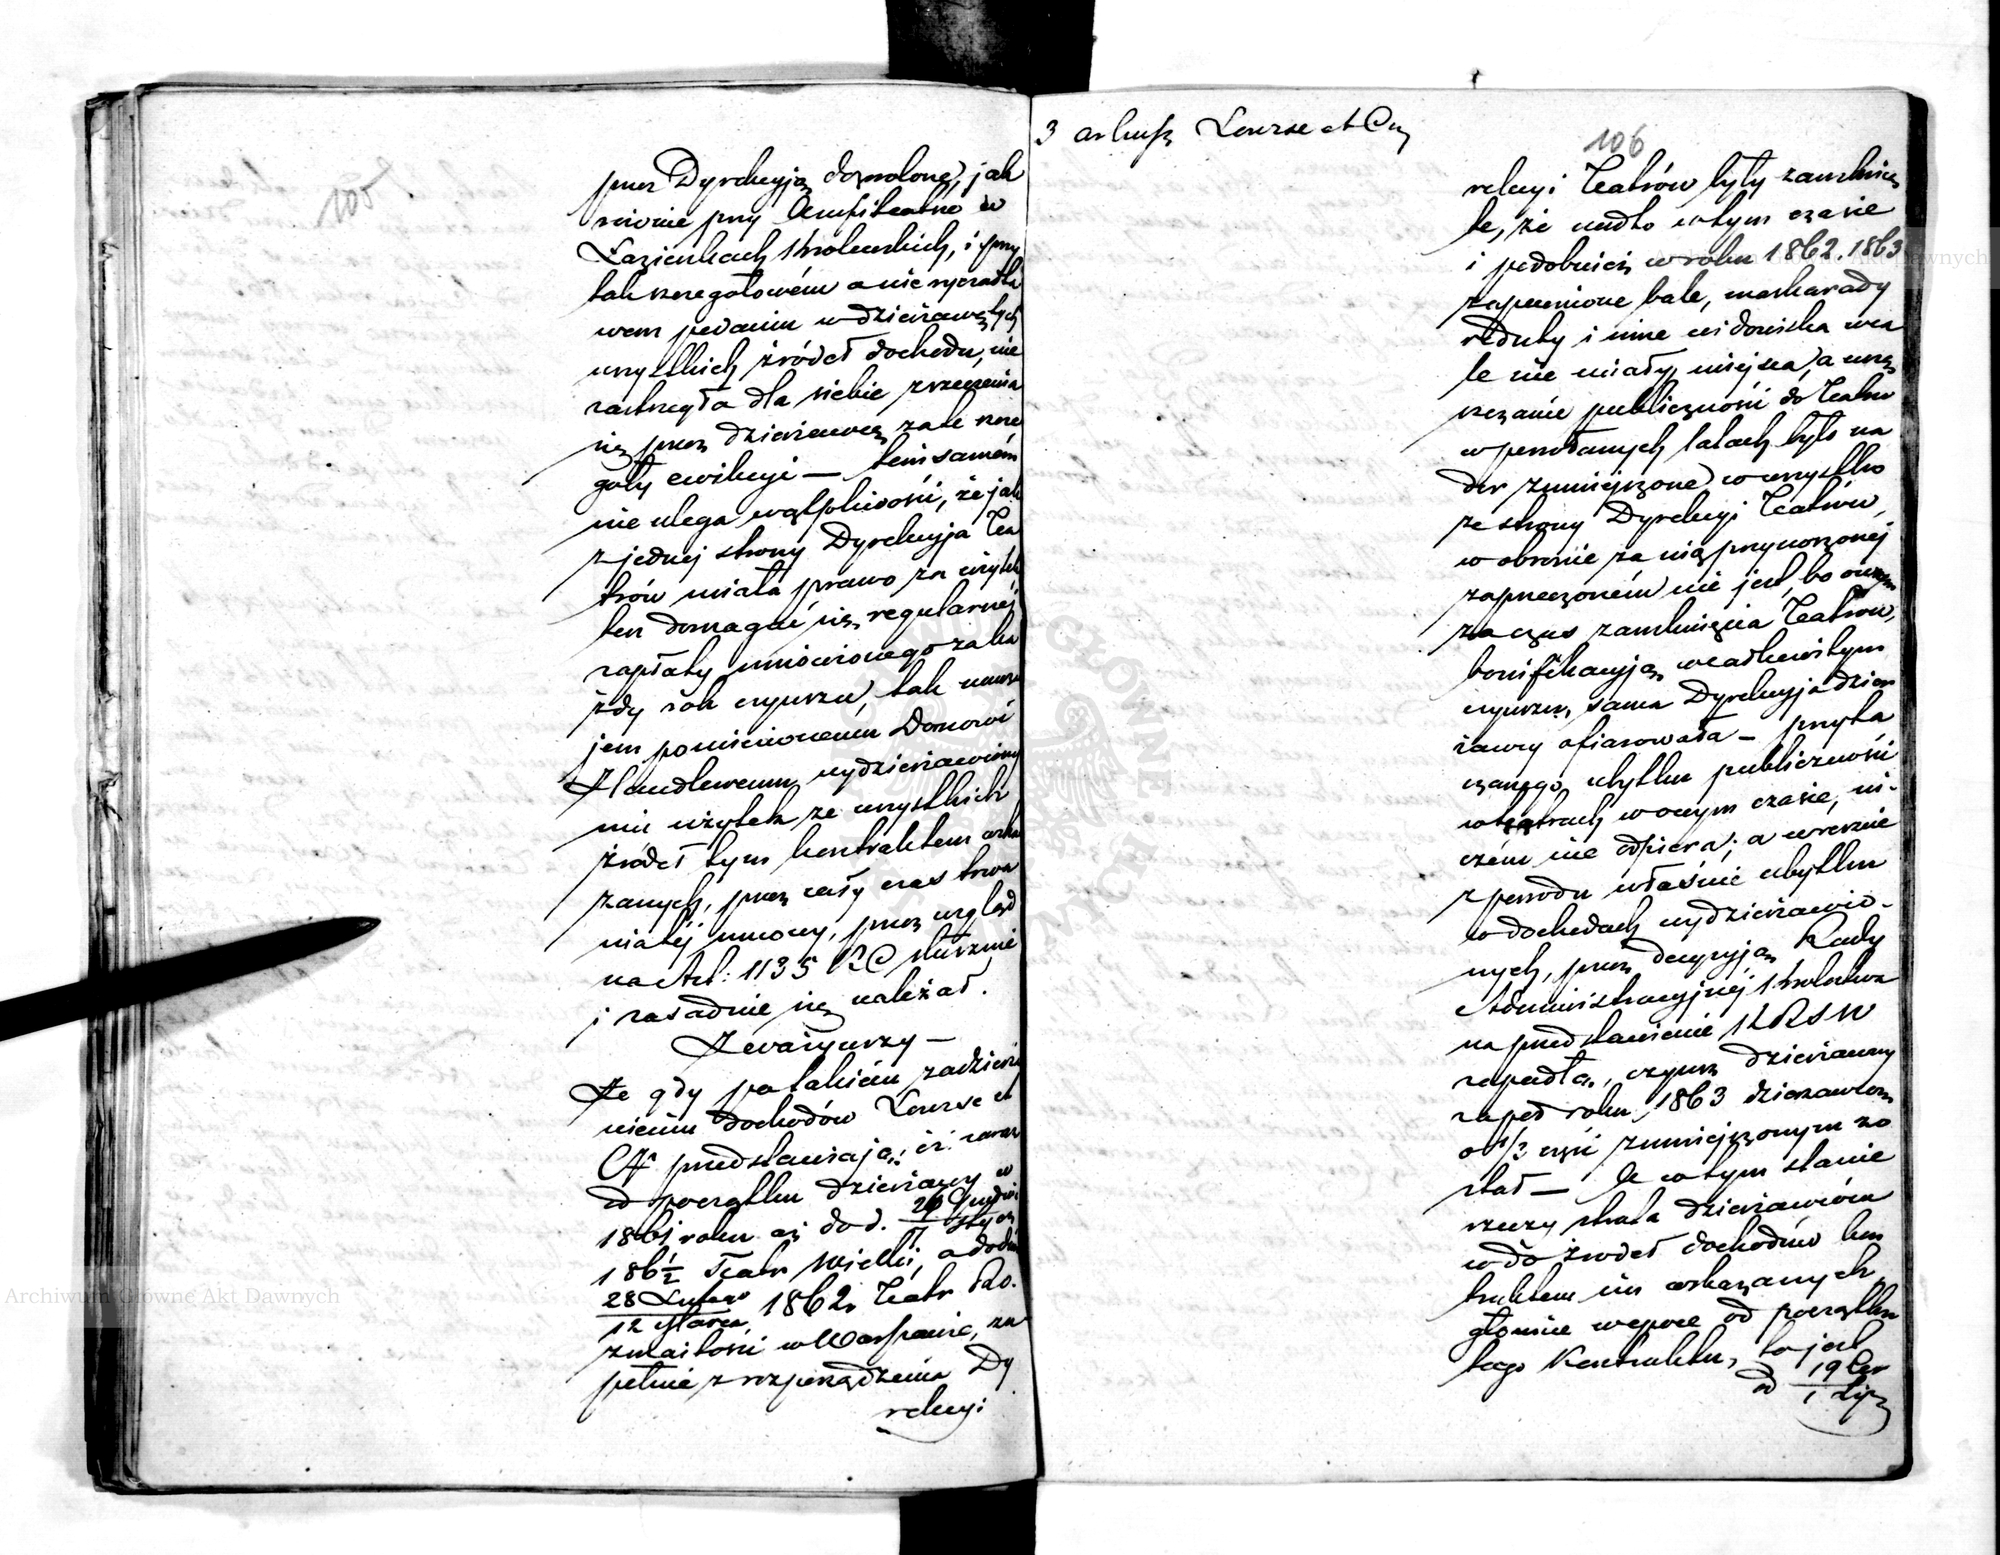 105
przez Dyrekcyją dozwolone, jak
równie przy Amfiteatrze w
Łazienkach Królewskich, i przy
tak szczegółowém a nie ryczałto
wem podaniu w dzierżawę tych
wszystkich źródeł dochodu, nie
zastrzegła dla siebie zrzeczenia
się przez dzierżawcę z tak szcze
góły ewikcyi — temsamém
nie ulega wątpliwości, że jak
z jednej strony Dyrekcyja Tea
trów miała prawo za użytek
ten domagać się regularnéj
zapłaty umówionego za ka
żdy rok czynszu, tak
jem pomienionemu Domowi
Handlowemu wydzierżawiony
mu użytek ze wszystkich
źródeł tym kontraktem wska
zanych, przez cały czas trwa
niatéj umowy, przez wzgląd
na Art: 1135 KC słusznie
i zasadnie się należał.
Zważywszy —
Że gdy po takiém zadzierża
wieniu dochodów Lourse et
Cp przedstawiają, iż zaraz
od początku dzierżawy w
1861 roku aż do d. 20 Grudnia
1 Stycz
186 1/2 Teatr Wielki, a do dnia
28 Lutego
12 Marca 1862 r Teatr Ro.
zmaitości w Warszawie, zu
pełnie z rozporządzenia Dy
rekcyi
3 arkusz Lourse et Cny
106
rekcyi Teatrów były zamknię
te, że nadto w tym czasie
i podobnież w roku 1862. 1863
zapewnione bale, maskarady
reduty i inne widowiska wca
le nie miały miejsca, a uczę
szczanie publiczności do Teatru
w powołanych latach było na
der zmniejszone) co wszystko
ze strony Dyrekcyi Teatrów,
w obronie za nią przynoszonéj
zaprzeczoném nie jest, bo owszem
za czas zamknięcia Teatrów,
bonifikacyją w całkowitym
czynszu, sama Dyrekcyja dzier
żawcy ofiarowała — przyta
czanego ubytku publiczności
w teatrach w owym czasie, ni-
czém nie odpiera; a wreszcie
z powodu właśnie ubytku
w dochodach wydzierżawio-
nych, przez decyzyją Rady
Administracyjnéj Królestwa
na przedstawienie KRSW
zapadłą, czynsz dzierżawny
za pół roku 1863 dzierżawcom
o 1/3 część zmniejszonym zo
stał — Że w tym stanie
rzeczy strata dzierżawców
w do źródeł dochodów kon
traktem im wskazanych
głównie wepoce od początku
tego Kontraktu, to jest
od 19 Czer
1 Lipc